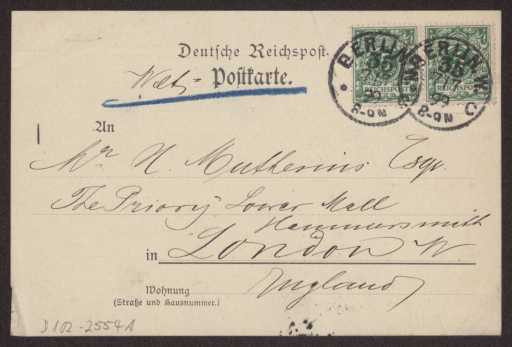 Deutsche Reichspost.
Welt-Postkarte.
An
Mr H. Muthesius Esqr.
The Priory Lower Mall
Hammersmith
in London W
England
Wohnung
(Straße und Hausnummer.)
BERLIN W.
35
8-9N
BERLIN W.
35
99
8-9N
REICHSPOST
D102-2554A